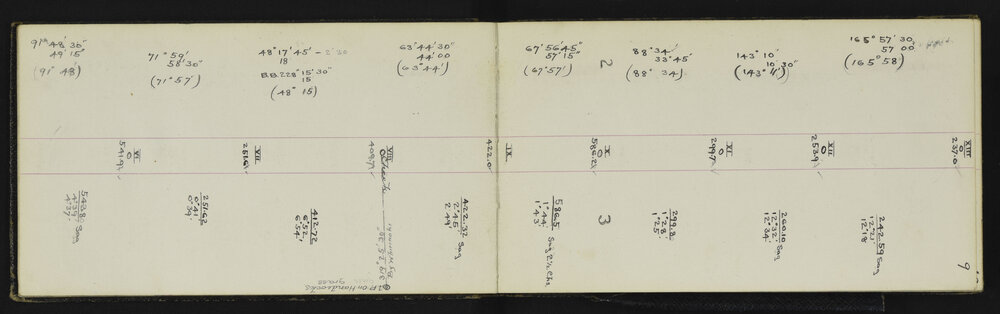 91° 48' 30"
49' 15"
(91° 48')
71° 59'
58' 30"
(71° 57')
48° 17' 45" - 2' 30
18
B.B. 228° 15' 30"
15
(48° 15)
63° 44' 30"
44' 00
(63° 44')
67° 56' 45"
57' 15"
(67° 57')
2
88° 34'
33' 45"
(88° 34)
143° 10'
10' 30"
(143° 11')
165° 57' 30
57 00
(165° 58)
VI
0
541.9
VII
251.6
VIII
409.7
IX
422.0
X
0
586.2
XI
0
299.7
XII
0
253.9
XIII
0
237.0
543.8 Sag
4° 39'
4° 37'
251.62
0° 41'
0° 34'
412.72
6° 52'
6° 54'
422.32 Sag
2° 45'
2° 49'
586.5 Sag 2½ Chs
1° 44'
1° 43'
3
299.8
1° 28'
1° 25'
260.10 Sag
12° 32'
12° 34'
242.59 Sag
12° 21'
12° 18'
9